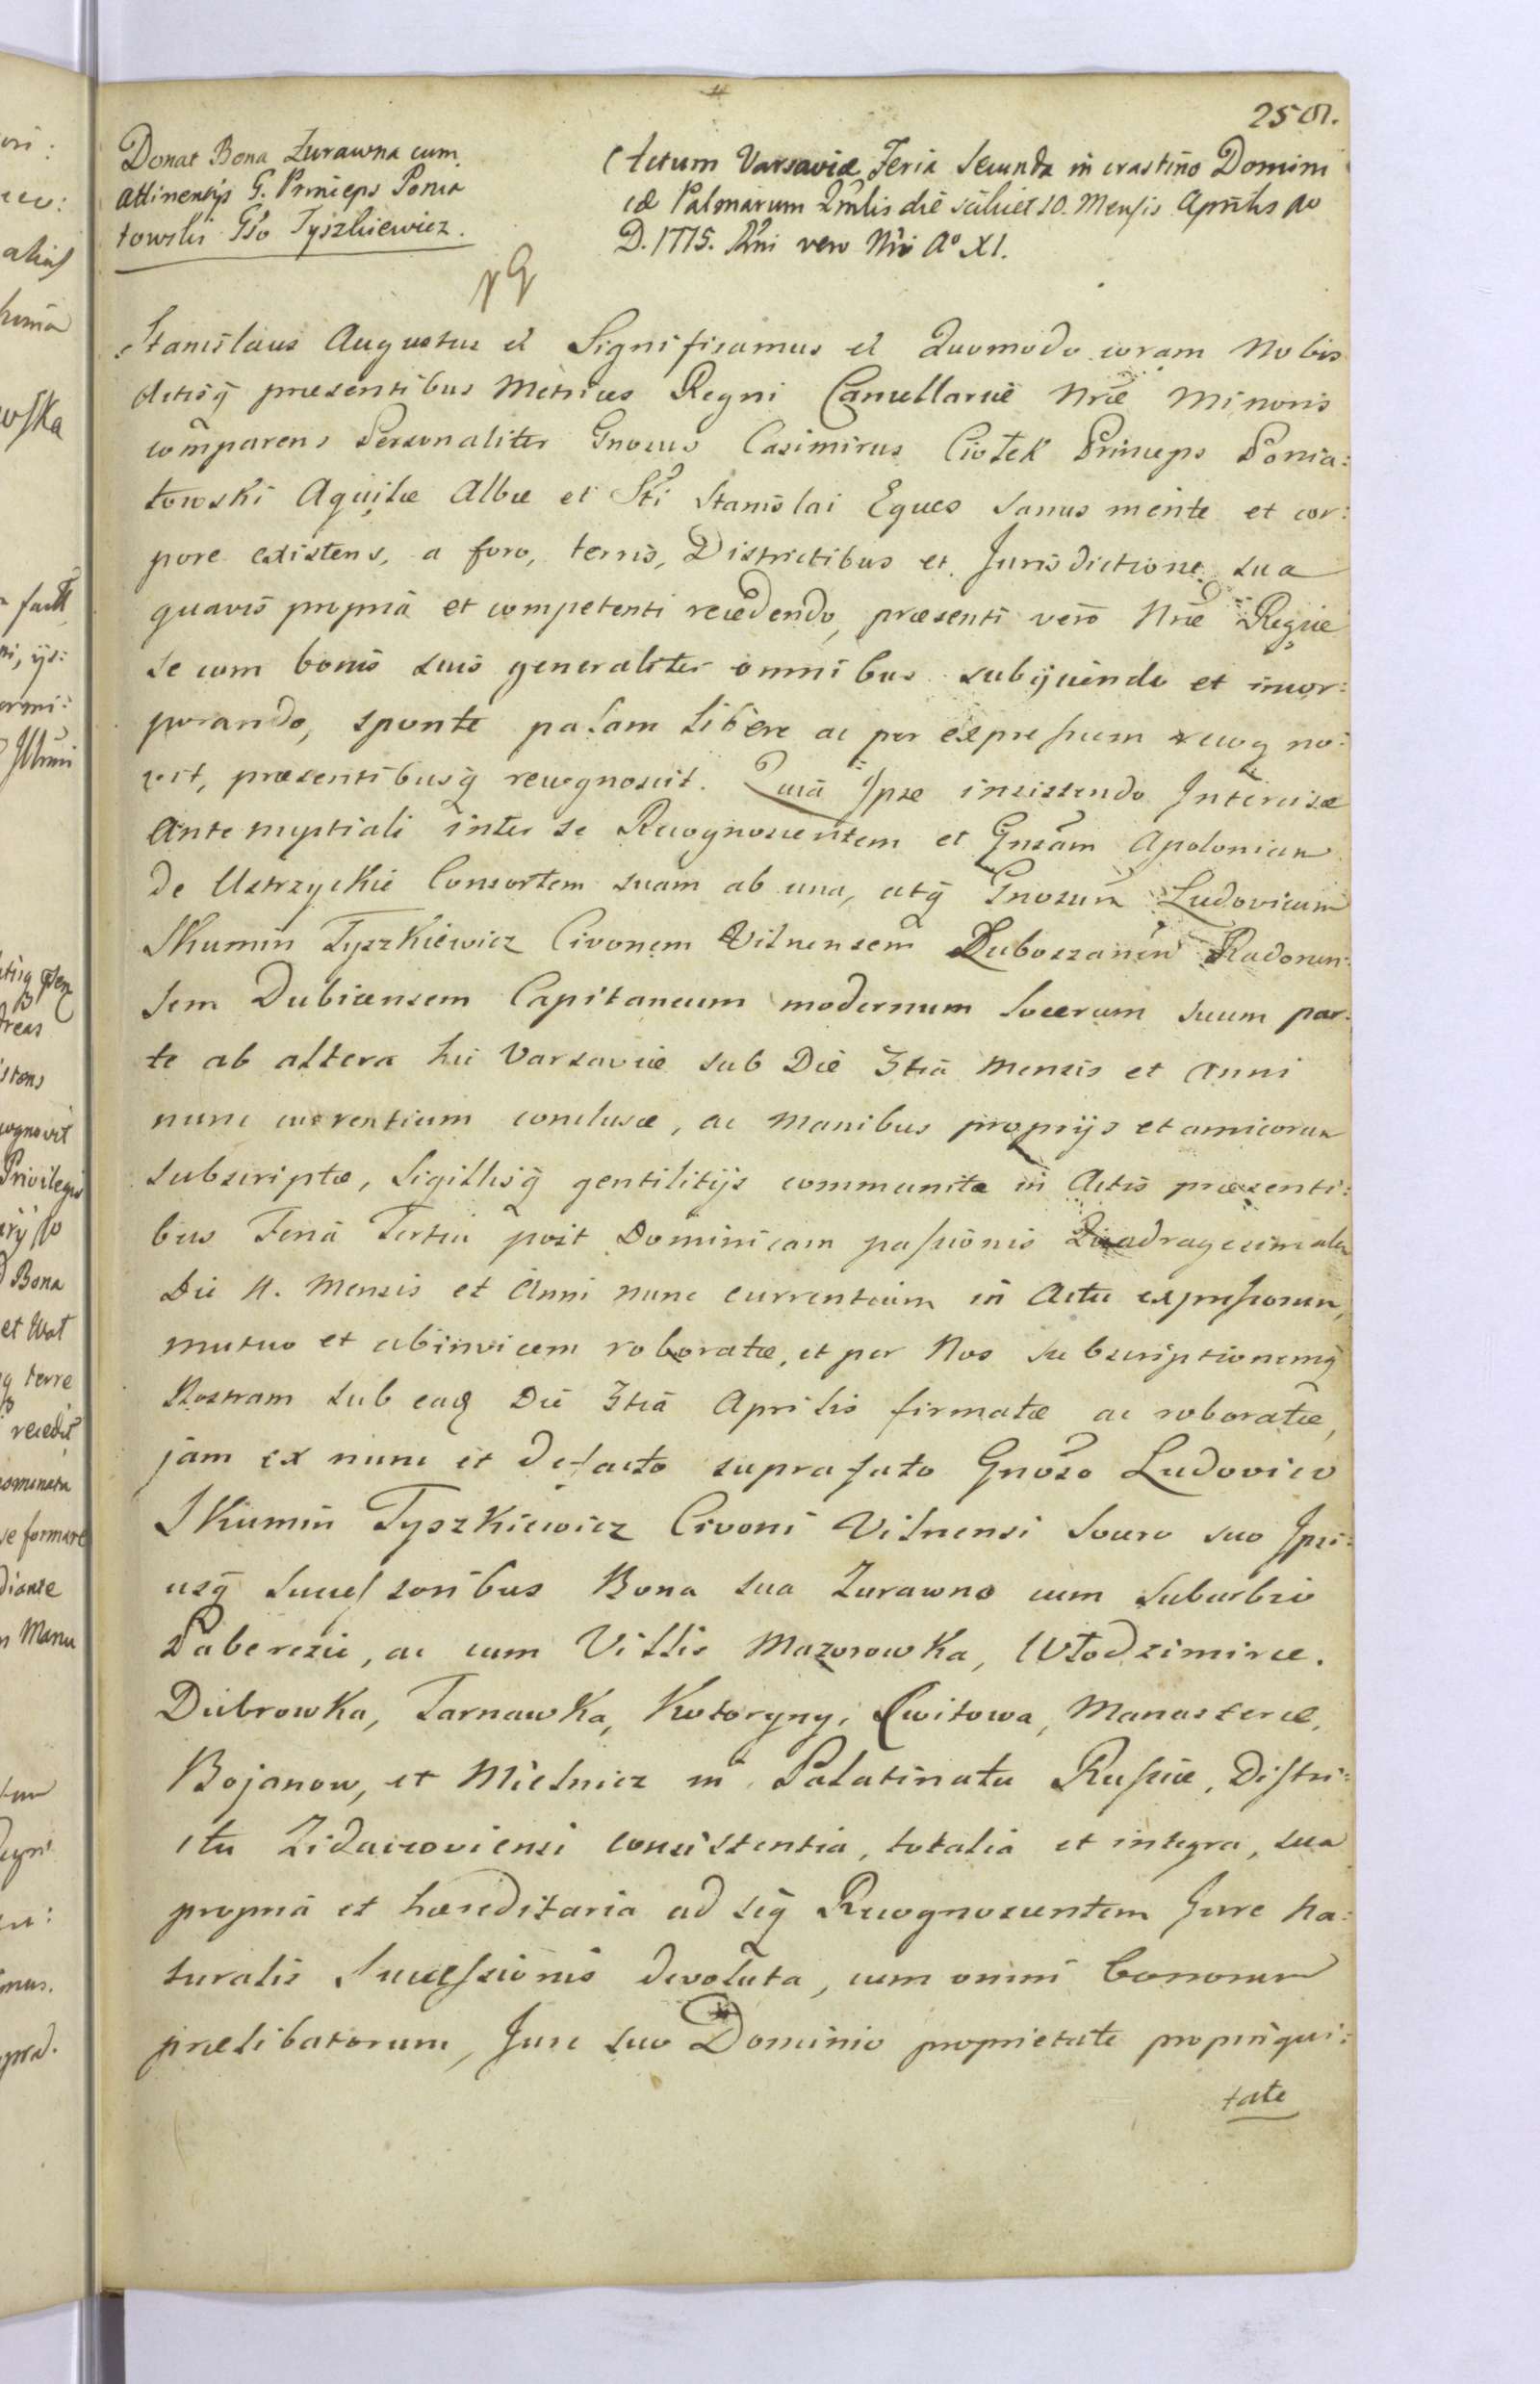 258.
Donat Bona Zurawna cum
attinensys G. Princeps Ponia
towski Gso Tyszkiewicz.
Actum Varsaviæ Feria Secunda in crastino Domini
cæ Palmarum Qmlis die scilicet 10. Mensis Aprilis Ao
D. 1775. Rni vero Nri Ao XI.
Stanislaus Augustus et Significamus et Quomodo coram Nobis
Actisq præsentibus Metrices Regni Cancellariæ Nræ Minoris
comparens Personaliter Gnosus Casimirus Ciołek Princeps Ponia:
towski Aquilæ Albæ et Sti Stanislai Eques sanus mente et cor:
pore existens, a foro, terris, Districtibus et Jurisdictione sua
quavis propria et competenti recedendo, præsenti vero Nræ Regiæ
se cum bonis suis generaliter omnibus subijciendo et incor:
porando, sponte palam libere ac per expressum recog no:
vit, præsentibusq recognoscit. Quia Ipse insistendo Intercisæ
Antenuptiali inter se Recognoscentem et Gnsam Apoloniam
de Ustrzyckie Consortem suam ab una, atq Gnosum Ludovicum
Skumin Tyszkiewicz Civonem Vilnensem Luboszanen Radonen:
sem Dubicensem Capitaneum modernum Socerum suum par:
te ab altera hic Varsaviæ sub Die 3tia Mensis et Anni
nunc currentium conclusæ, ac Manibus proprijs et amicorum
subscriptæ, Sigillisq gentilitijs communitæ in Actis præsenti:
bus Feria Tertia post Dominicam passionis Quadragesimalem
Die 4. Mensis et Anni nunc currentium in Actu expressorum,
mutuo et abinvicem roboratæ, et per Nos subscriptionemq
Nostram sub eadem Die 3tia Aprilis firmatæ ac roboratæ,
jam ex nunc et defacto suprafato Gnoso Ludovico
Skumin Tyszkiewicz Civoni Vilnensi Socero suo Ipsi:
usq Successoribus Bona sua Zurawno cum Suburbio
Zaberezie, ac cum Villis Mazorowka, Włodzimirce.
Dubrowka, Tarnawka, Kotoryny, Cwitowa, Manasterce,
Bojanow, et Mielnicz in Palatinatu Russiæ, Distri:
ctu Zidaczoviensi consistentia, totalia et integra, sua
propria et hæreditaria ad seq Recognoscentem Jure na:
turalis Successionis devoluta, cum omni bonorum
prælibatorum, Jure suo Dominio proprietate propinqui:
tate